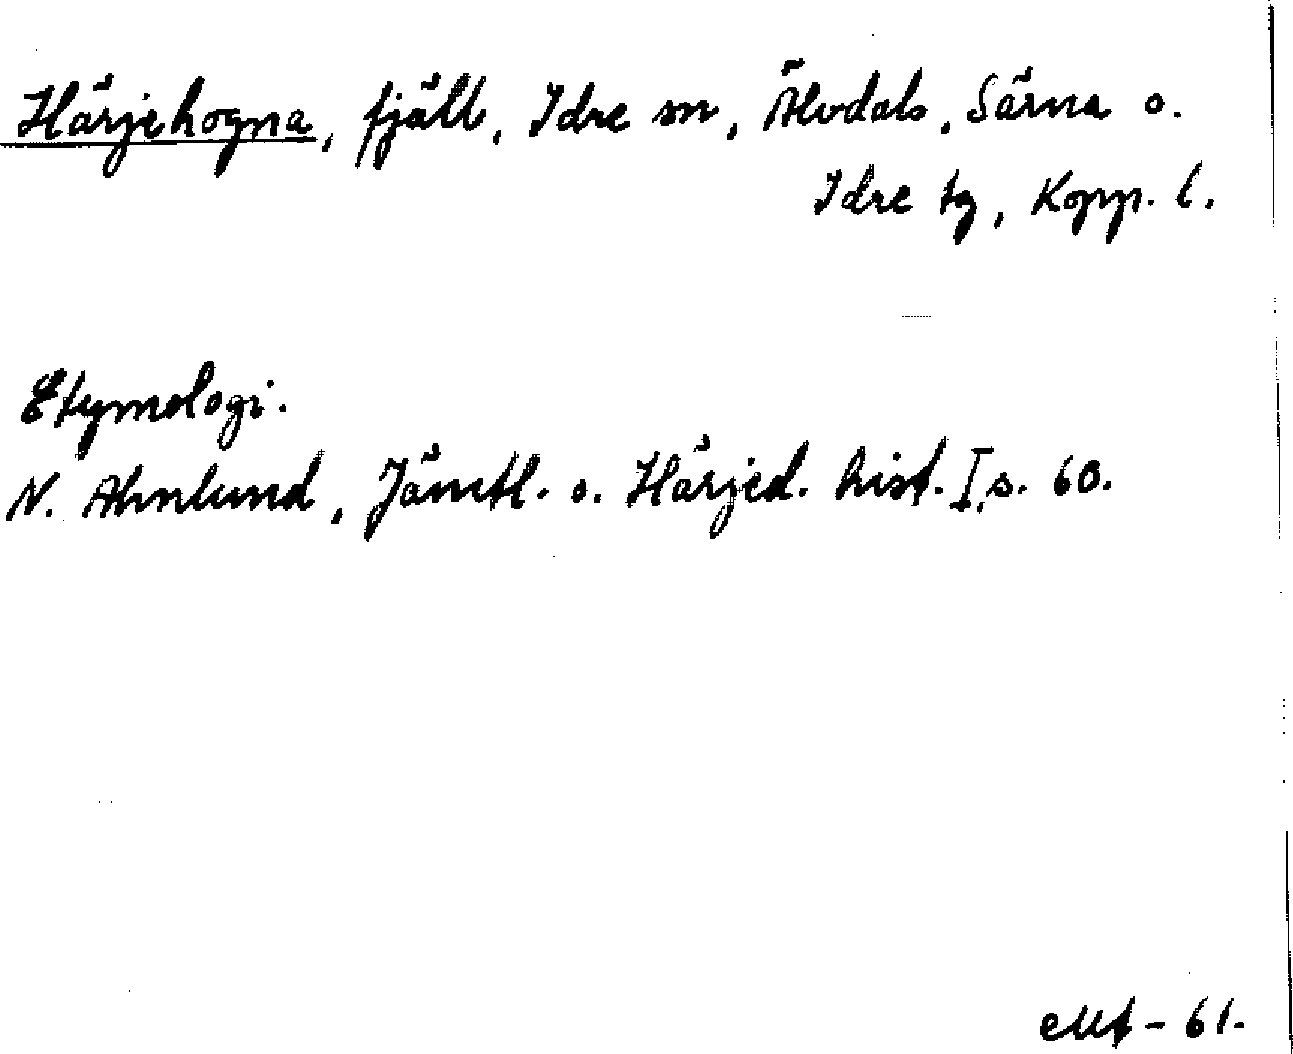 Härjehogna, fjäll, Idre sn, Älvdals, Särna o.
Idre tg, Kopp. l.
Etymologi.
N. Ahnlund, Jämtl. o. Härjed. hist. I, s. 60.
- 61.